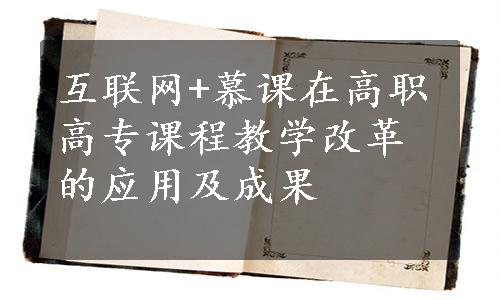 互联网+慕课在高职
高专课程教学改革
的应用及成果